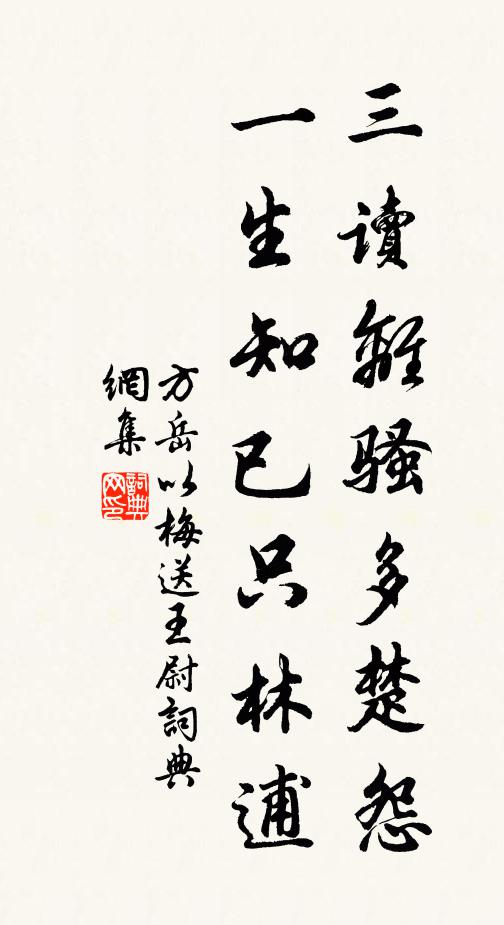 三讀離騷多楚怨
一生知已只林逋
方岳以梅送王尉詞典
網集
詞典
网印